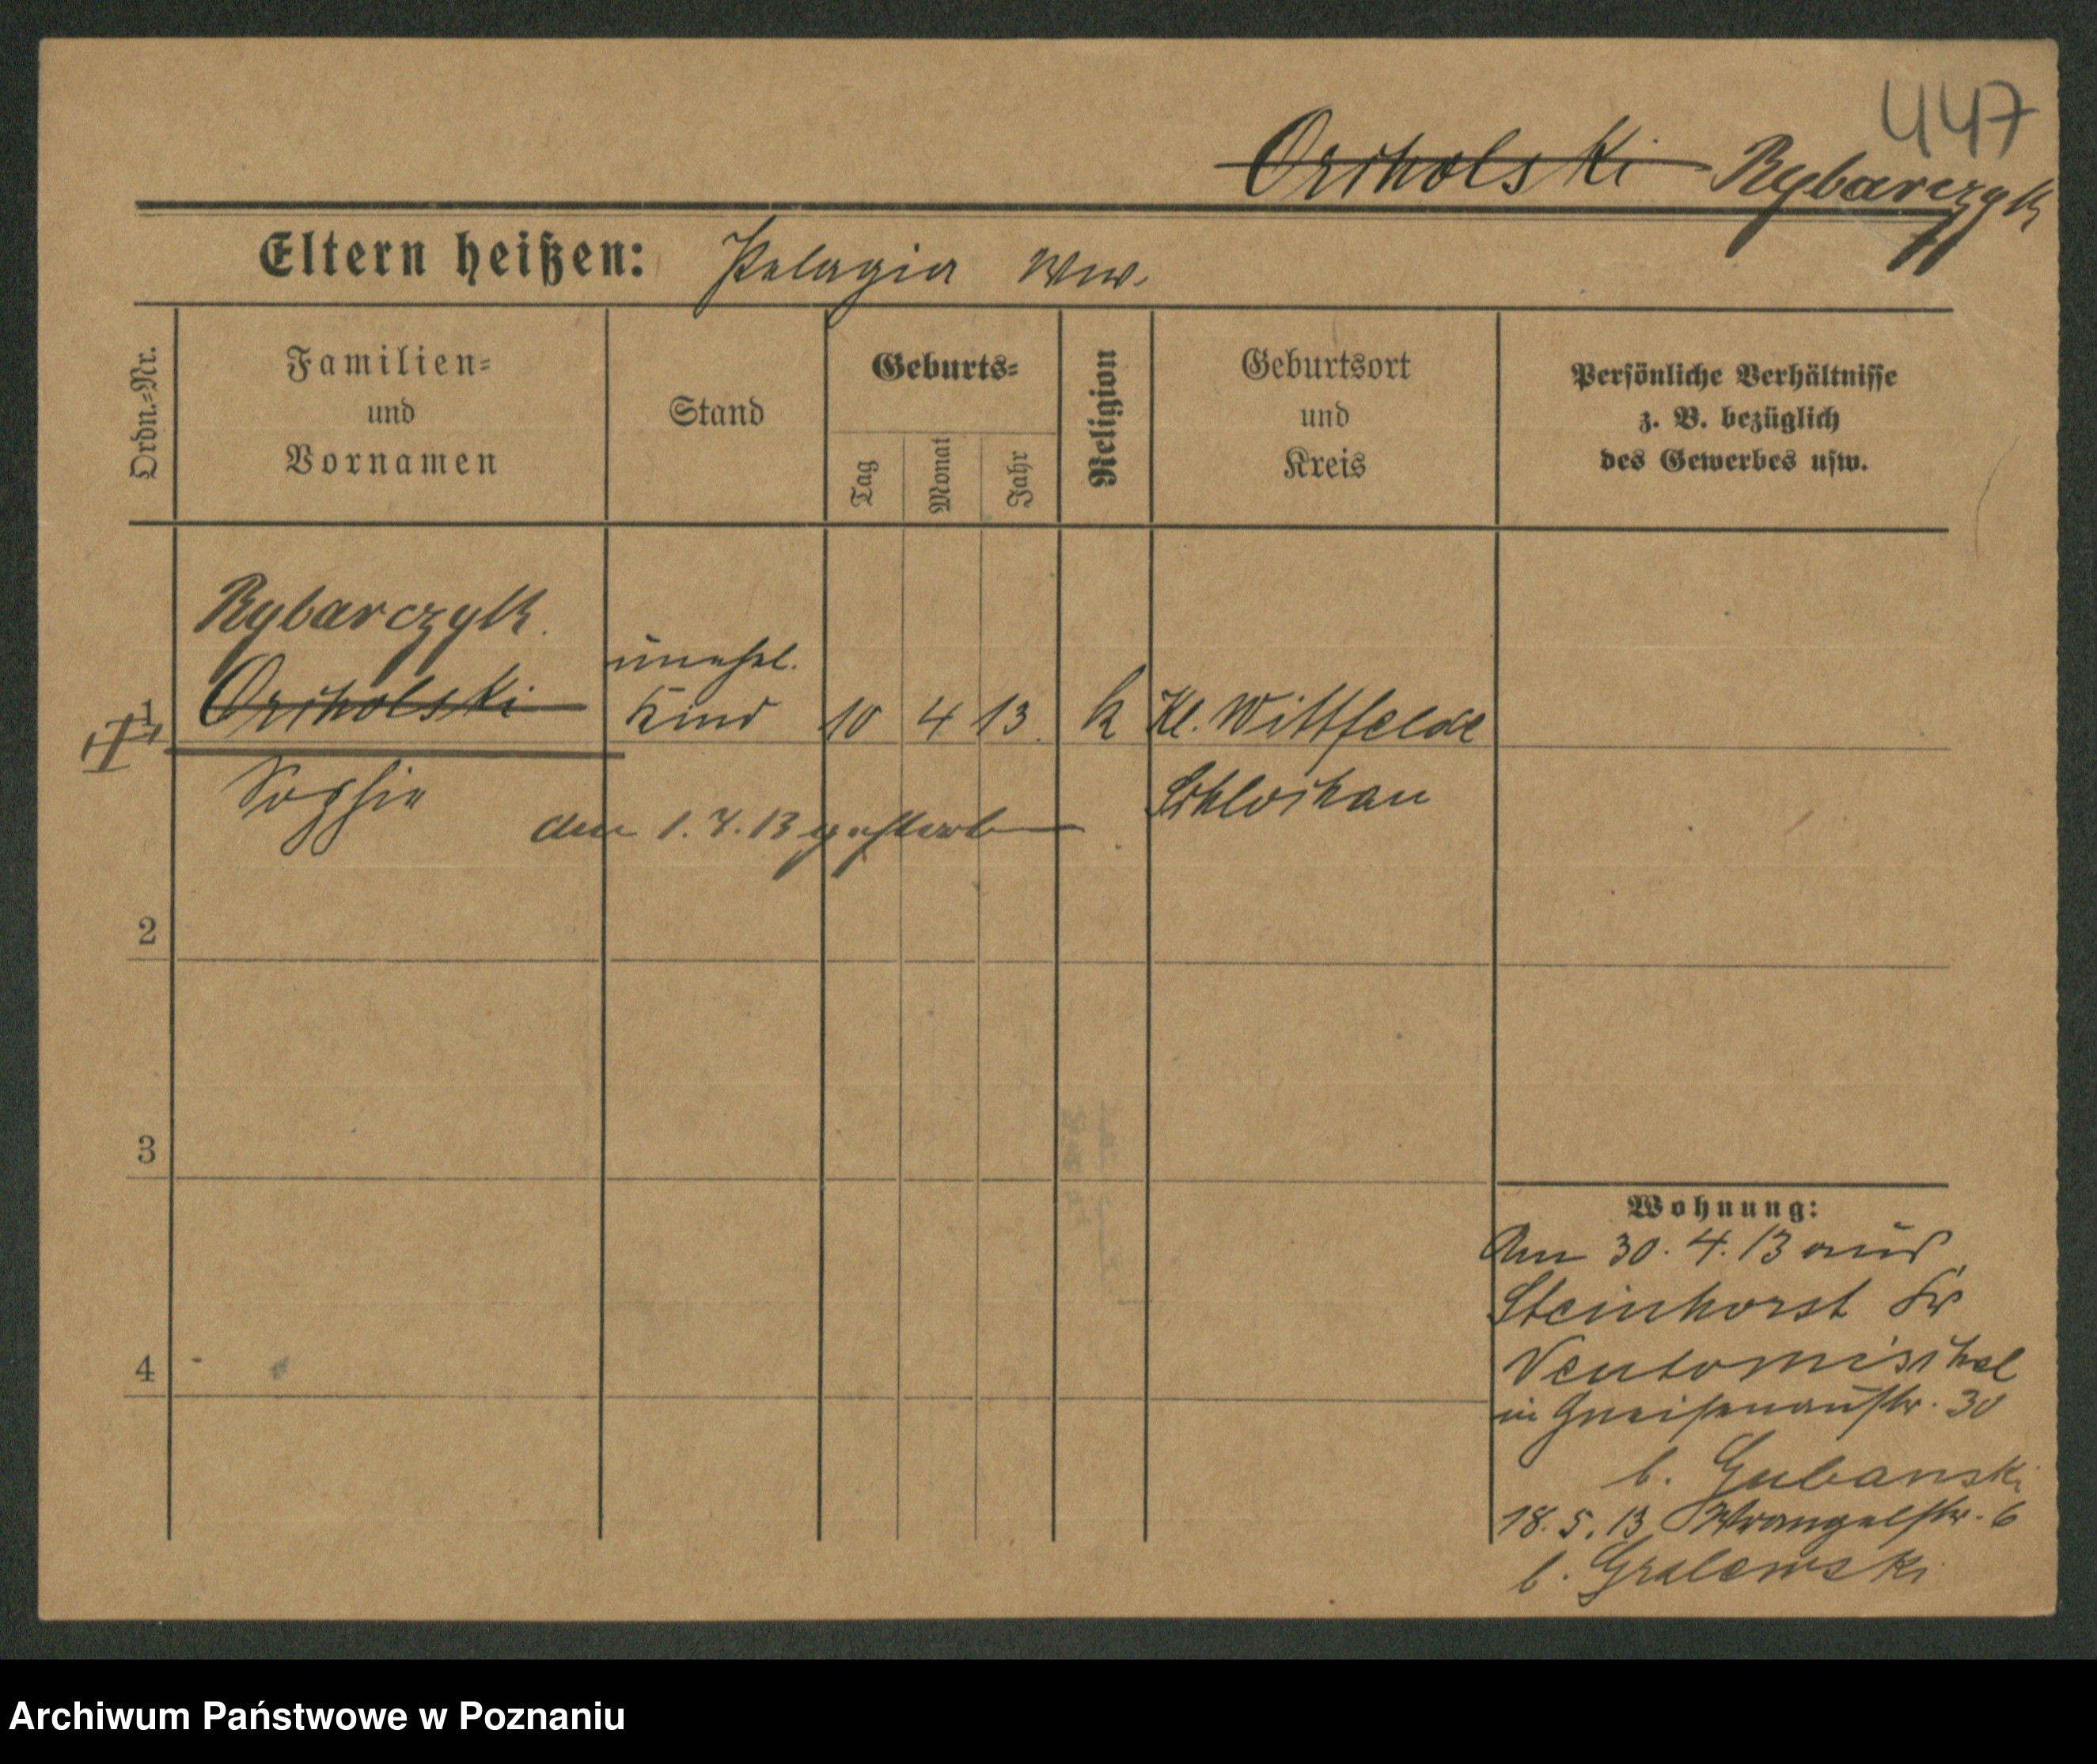 447
Orcholski Rybarczyk
Eltern heißen: Pelagia Ww.
Ordn.-Nr.
Familien-
und
Vornamen
Stand
Geburts-
Tag
Monat
Jahr
Religion
Geburtsort
und
Kreis
Persönliche Verhältnisse
z. B. bezüglich
des Gewerbes usw.
Rybarczyk.
unehel.
1 Orcholski Kind 10 4 13 k Kl. Wittfelde
Sophie Schlochau
den 1.7.13 gestorben
2
3
4
Wohnung:
Am 30.4.13 aus
Steinhorst Kr
Neutomischel
in Gneisenaustr. 30
b. Gubanski
18.5.13 Wrangelstr. 6
b. Gralewski
Archiwum Państwowe w Poznaniu